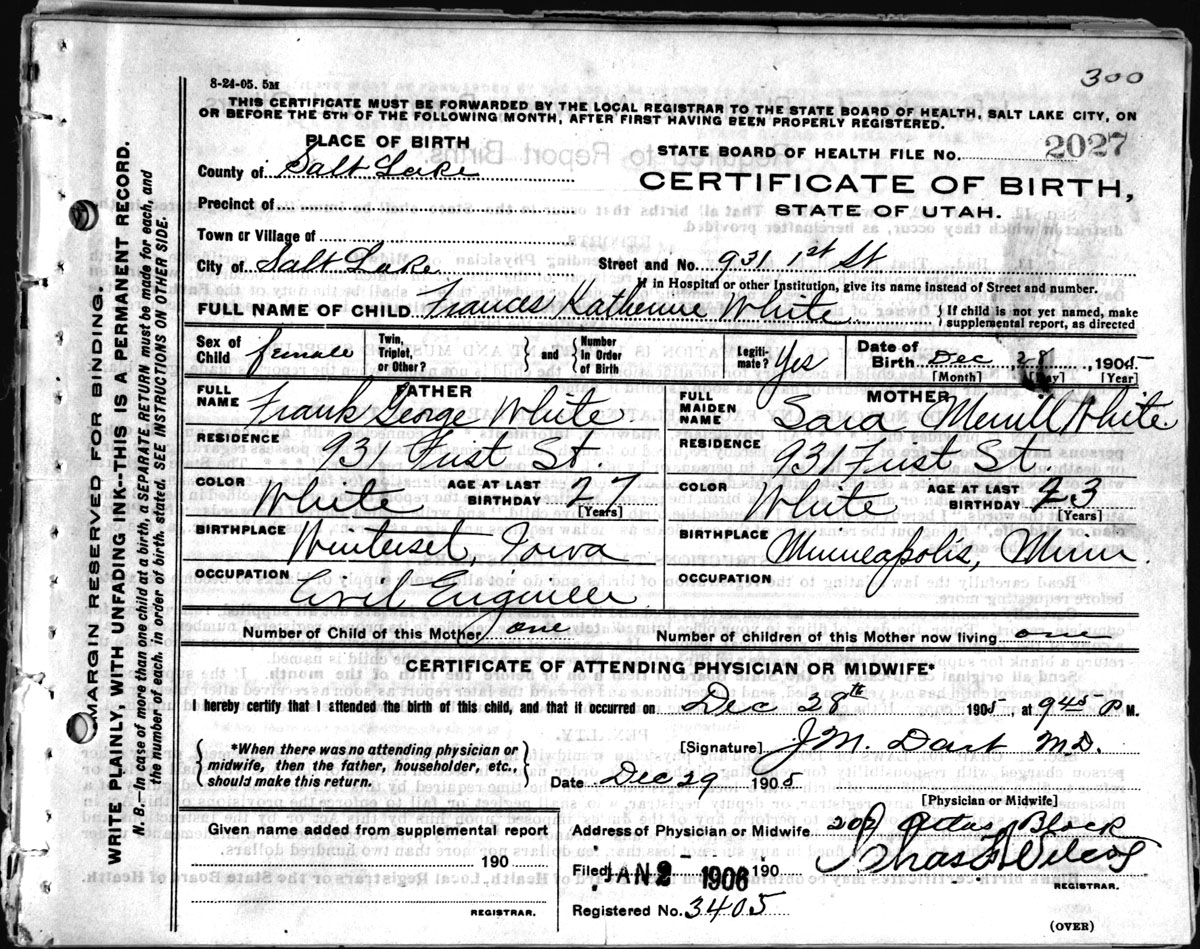 300
8-24-05. 5M
THIS CERTIFICATE MUST BE FORWARDED BY THE LOCAL REGISTRAR TO THE STATE BOARD OF HEALTH, SALT LAKE CITY, ON
OR BEFORE THE 5TH OF THE FOLLOWING MONTH, AFTER FIRST HAVING BEEN PROPERLY REGISTERED.
PLACE OF BIRTH
County of Salt Lake
Precinct of
Town or Village of
STATE BOARD OF HEALTH FILE NO. 2027
CERTIFICATE OF BIRTH,
STATE OF UTAH.
City of Salt Lake Street and No. 931 1st St
If in Hospital or other Institution, give its name instead of Street and number.
FULL NAME OF CHILD Frances Katherine White } If child is not yet named, make
supplemental report, as directed
Sex of Child female Twin, Triplet, or Other? } and { Number in Order of Birth Legiti-mate? Yes Date of Birth Dec 28 1905
[Month] [Day] [Year]
FATHER
FULL NAME Frank George White
RESIDENCE 931 First St.
COLOR White AGE AT LAST BIRTHDAY 27
[Years]
BIRTHPLACE Winterset, Iowa
OCCUPATION Civil Engineer
MOTHER
FULL MAIDEN NAME Sara Merrill White
RESIDENCE 931 First St.
COLOR White AGE AT LAST BIRTHDAY 23
[Years]
BIRTHPLACE Minneapolis, Minn.
OCCUPATION
Number of Child of this Mother one Number of children of this Mother now living one
CERTIFICATE OF ATTENDING PHYSICIAN OR MIDWIFE*
I hereby certify that I attended the birth of this child, and that it occurred on Dec 28th 1905, at 9 45 P M.
{ *When there was no attending physician or
midwife, then the father, householder, etc.,
should make this return. }
[Signature] J M. Dart M.D.
Date Dec 29 1905
[Physician or Midwife]
Given name added from supplemental report
190
REGISTRAR.
Address of Physician or Midwife 202 Block
Filed JAN 2 1906 190 Chas Wilcox
REGISTRAR.
Registered No. 3405
(OVER)
MARGIN RESERVED FOR BINDING.
WRITE PLAINLY, WITH UNFADING INK--THIS IS A PERMANENT RECORD.
N. B.—In case of more than one child at a birth, a SEPARATE RETURN must be made for each, and
the number of each, in order of birth, stated. SEE INSTRUCTIONS ON OTHER SIDE.